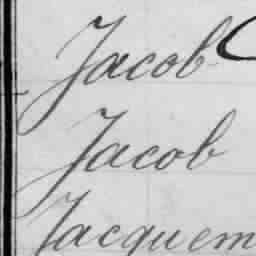 Jacob
Jacob
Jacquem